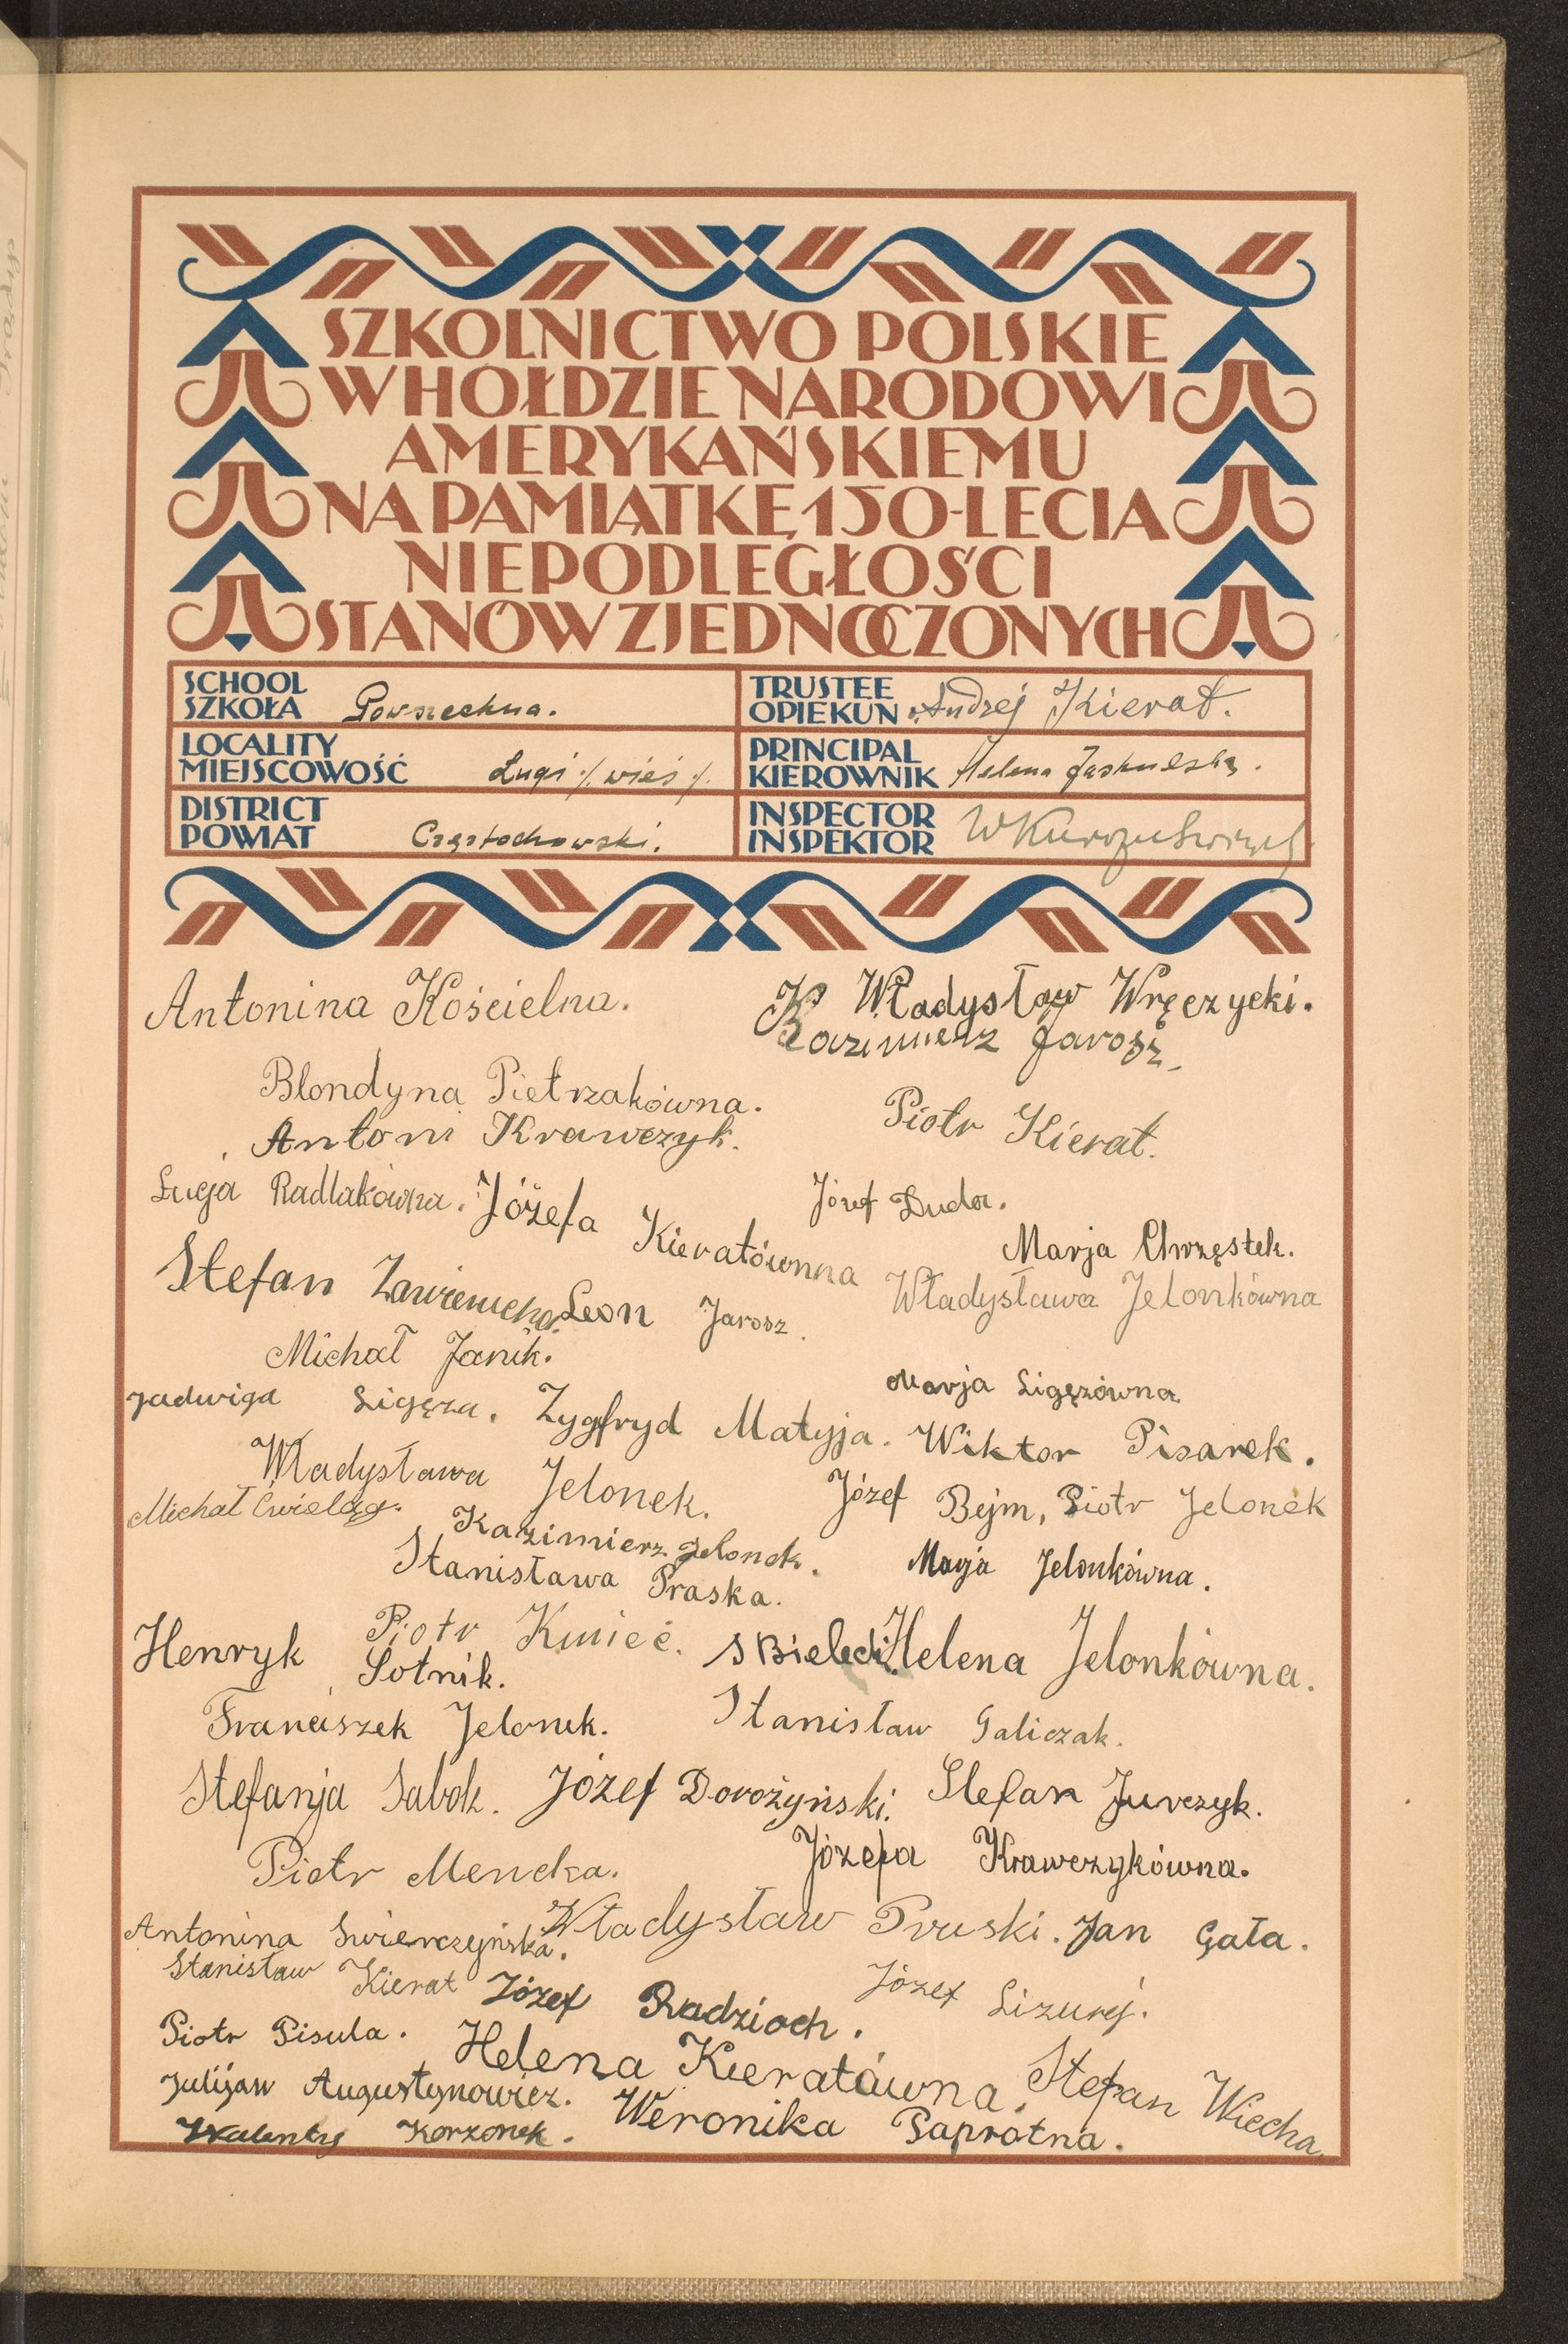 SZKOLNICTWO POLSKIE
W HOŁDZIE NARODOWI
AMERYKAŃSKIEMU
NA PAMIĄTKĘ 150-LECIA
NIEPODLEGŁOŚCI
STANÓW ZJEDNOCZONYCH
SCHOOL
SZKOŁA Powszechna.
TRUSTEE
OPIEKUN Andrzej Kierat.
LOCALITY
MIEJSCOWOŚĆ Ługi ./. wieś ./.
PRINCIPAL
KIEROWNIK Helena Jaskulska.
DISTRICT
POWIAT Częstochowski.
INSPECTOR
INSPEKTOR
Antonina Kościelna.
K Władysław Wręczycki.
Kazimierz Jarosz.
Blondyna Pietrzakówna.
Antoni Krawczyk.
Piotr Kierat.
Łucja Radlakówna. Józefa Kieratównna
Józef Duda.
Marja Chrzęstek.
Stefan Zawierucha. Leon Jarosz.
Władysława Jelonkówna
Michał Janik.
Marja Ligęzówna
Jadwiga Ligęza. Zygfryd Matyja. Wiktor Pisarek.
Władysława Jelonek.
Józef Bejm, Piotr Jelonek
Michał Ćwieląg.
Kazimierz Jelonek.
Stanisława Praska.
Marja Jelonkówna.
Piotr Kmieć.
Henryk Sotnik.
S Bielecki. Helena Jelonkówna.
Franciszek Jelonek. Stanisław Galiczak.
Stefanja Sabok. Józef Dorożyński. Stefan Jurczyk.
Piotr Mencka. Józefa Krawczykówna.
Antonina Swierczyńska. Władysław Pruski. Jan Gała.
Stanisław Kierat Józef Radzioch. Józef Lizurej.
Piotr Pisula. Helena Kieratówna. Stefan Wiecha.
Julijan Augustynowicz. Weronika Paprotna.
Walenty Korzonek.